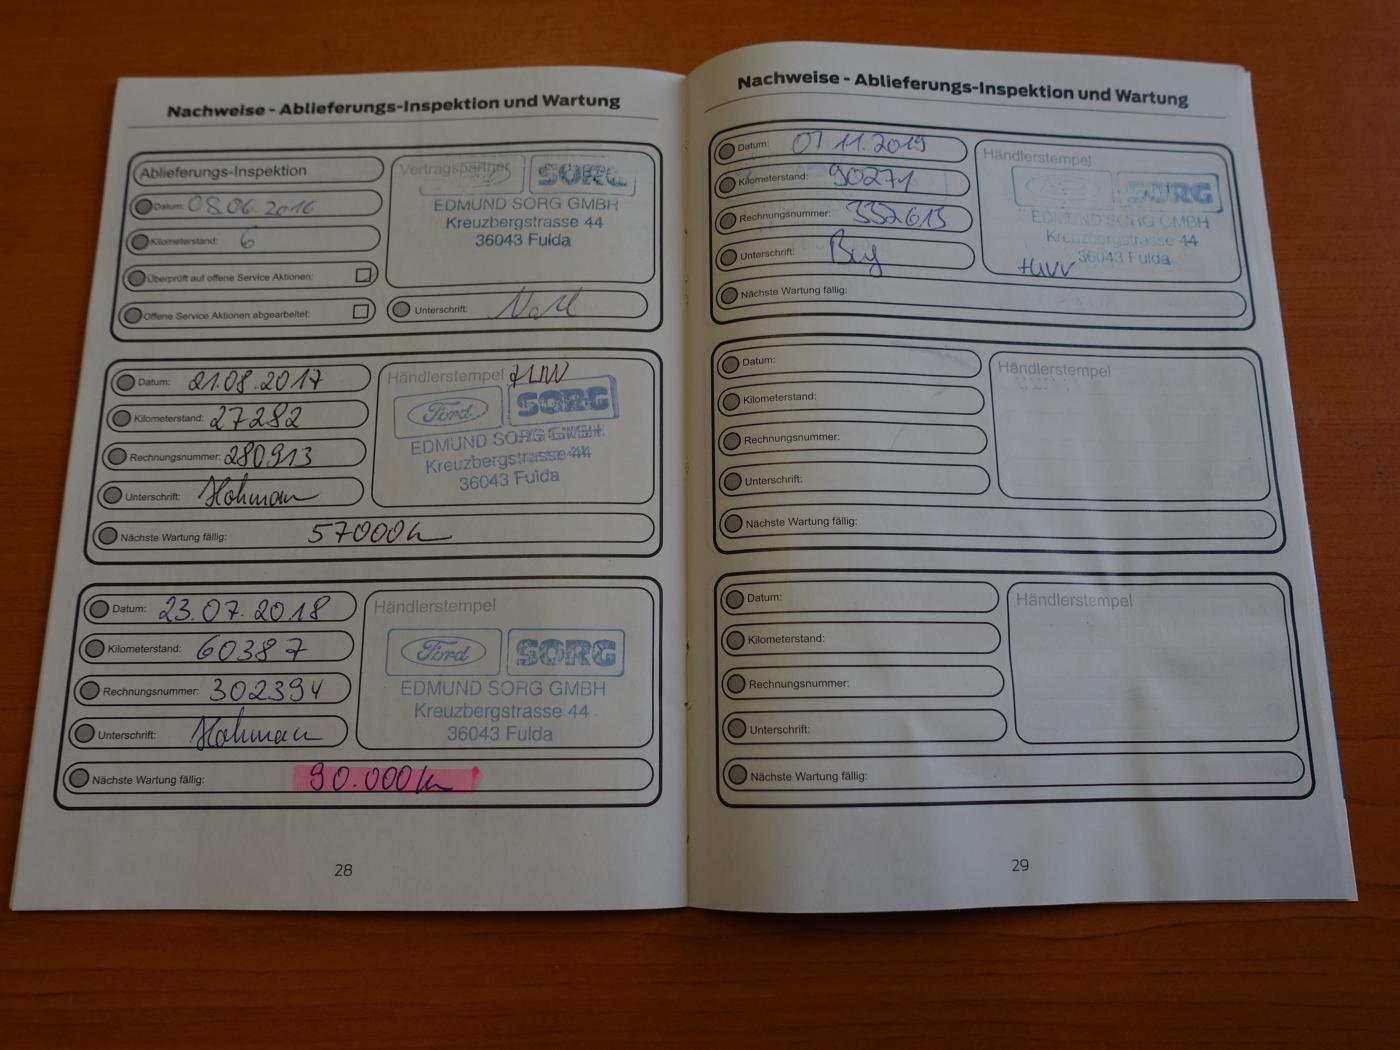 Nachweise - Ablieferungs-Inspektion und Wartung
Ablieferungs-Inspektion
Datum: 08.06.2016
Kilometerstand: 6
Überprüft auf offene Service Aktionen:
Offene Service Aktionen abgearbeitet:
Vertragspartner
SORG
EDMUND SORG GMBH
Kreuzbergstrasse 44
36043 Fulda
Unterschrift:
Datum: 21.08.2017
Kilometerstand: 27282
Rechnungsnummer: 280913
Unterschrift: Hohmann
Nächste Wartung fällig: 57000km
Händlerstempel
Ford SORG
EDMUND SORG GMBH
Kreuzbergstrasse 44
36043 Fulda
Datum: 23.07.2018
Kilometerstand: 60387
Rechnungsnummer: 302394
Unterschrift: Hohmann
Nächste Wartung fällig: 90.000km
Händlerstempel
Ford SORG
EDMUND SORG GMBH
Kreuzbergstrasse 44
36043 Fulda
28
Nachweise - Ablieferungs-Inspektion und Wartung
Datum: 07 11.2019
Kilometerstand: 90271
Rechnungsnummer: 332613
Unterschrift:
Nächste Wartung fällig:
Händlerstempel
SORG
EDMUND SORG GMBH
Kreuzbergstrasse 44
36043 Fulda
Datum:
Kilometerstand:
Rechnungsnummer:
Unterschrift:
Nächste Wartung fällig:
Händlerstempel
Datum:
Kilometerstand:
Rechnungsnummer:
Unterschrift:
Nächste Wartung fällig:
Händlerstempel
29